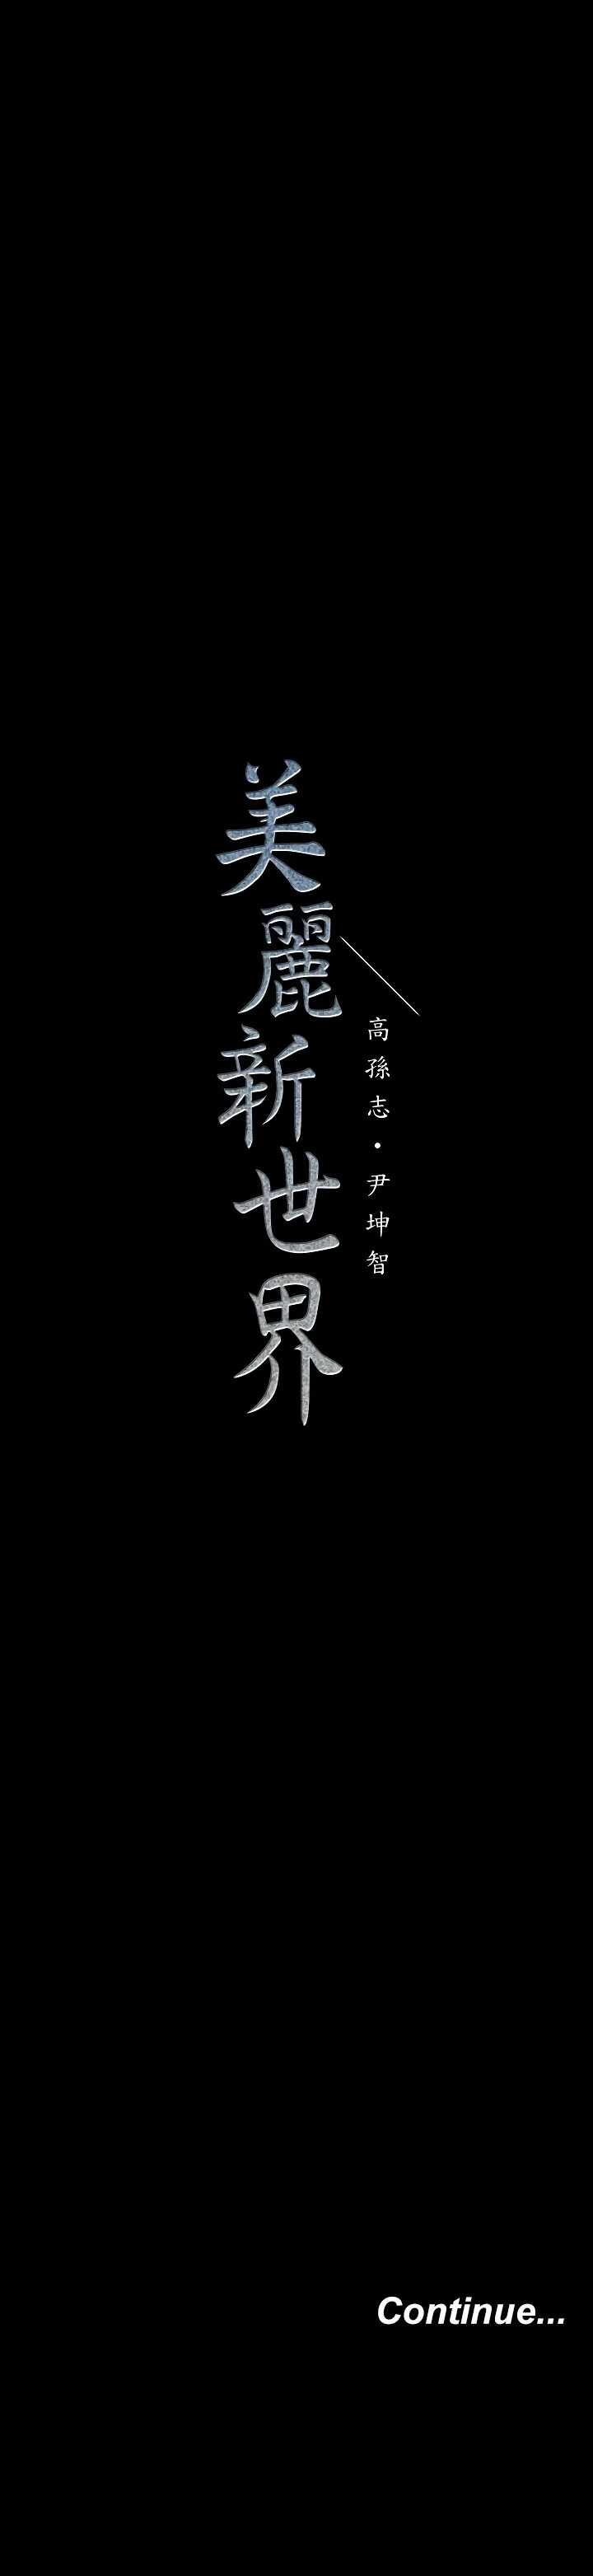 美麗新世界
高孫志·尹坤智
Continue...